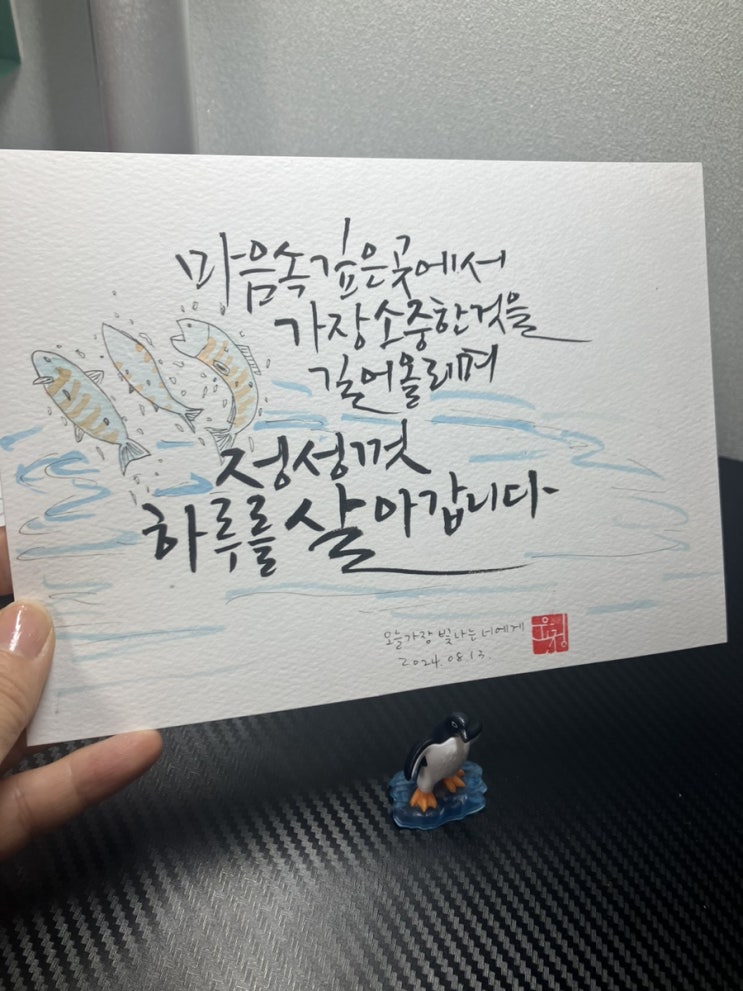 마음속깊은곳에서
가장소중한것을
길어올리며
정성껏
하루를 살아갑니다
오늘가장 빛나는 너에게
2024.08.13.